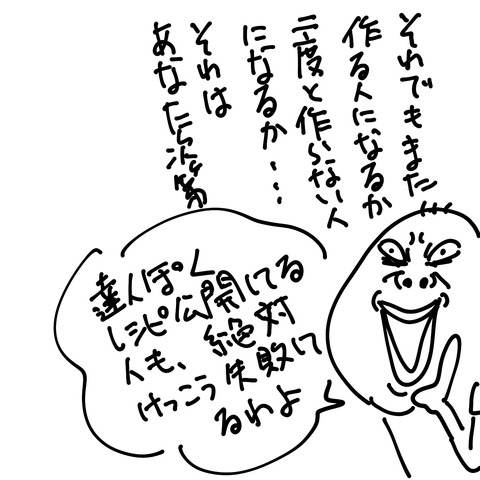 それでもまた
作る人になるか
二度と作らない人
になるか…
それは
あなたら次第
達人ぽく
レシピ公開してる
人も、絶対
けっこう失敗して
るわよ